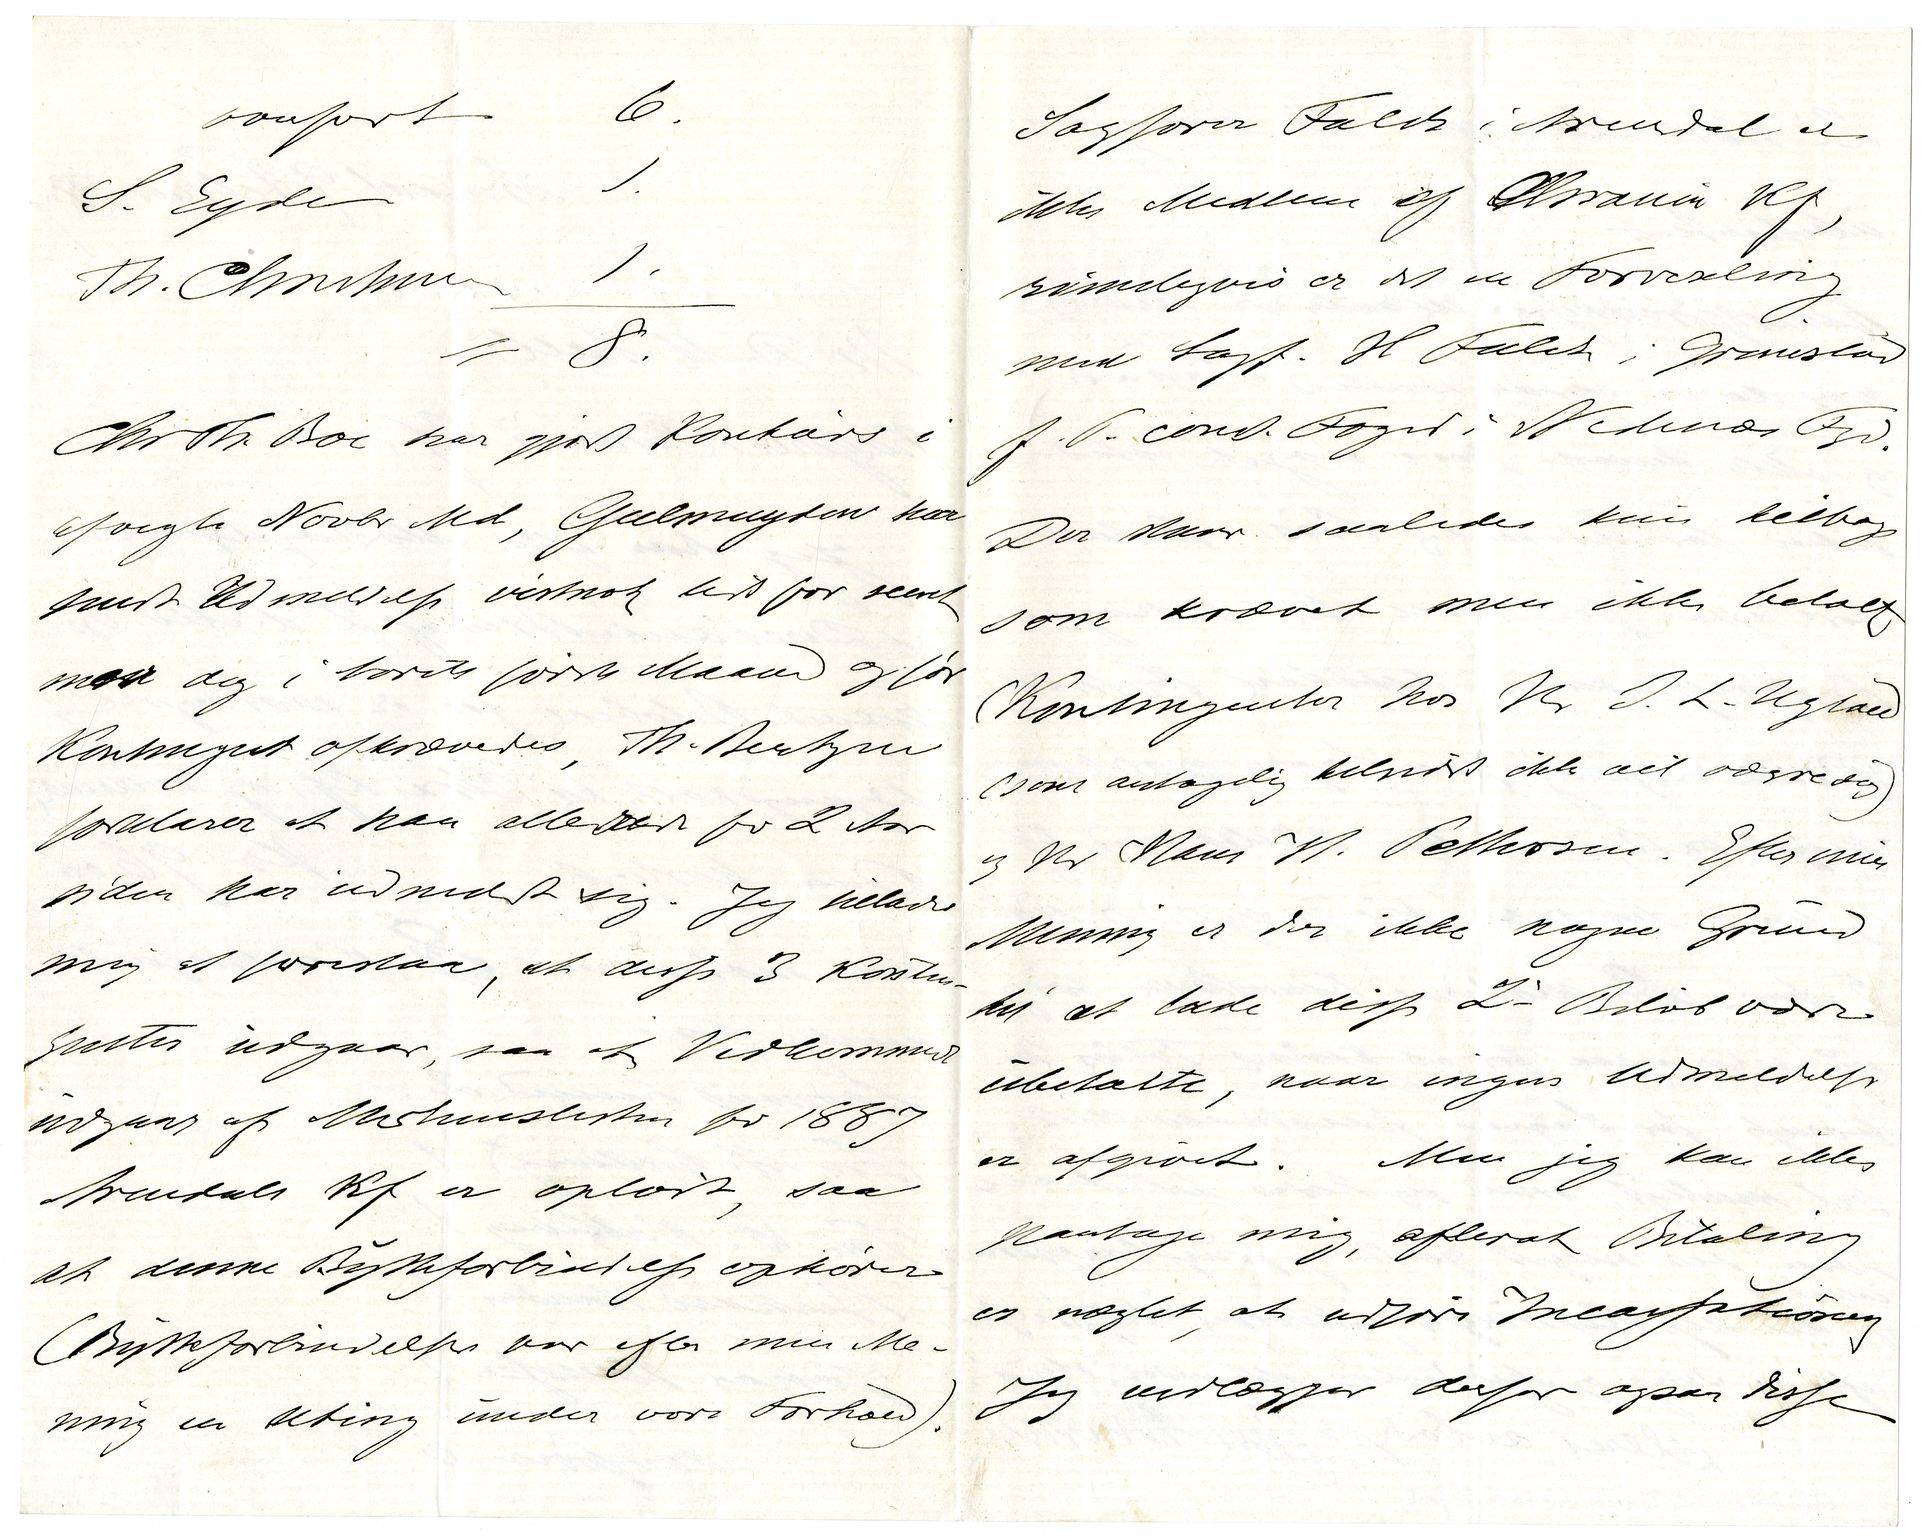 ovenført 6.
S. Eyde 1.
Th. Christensen 1.
= 8.
Chr Th. Boe har gjort Konkurs i
afvigte Novbr Md, Gulmuyden har
sendt Udmeldelse vistnok lidt for seent
men dog i Aarets første Maaned og før
Kontingent afkrævedes, Th. Bentzen
forklarer at han allerede for 2 Aar
siden har udmeldt sig. Jeg tillader
mig at foreslaa, at disse 3 Kontin-
genter udgaar, saa at Vedkommende
udgaar af Medlemslisten for 1887
Arendals Kf er opløst, saa
at denne Bytteforbindelse ophører
(Bytteforbindelsen var efter min Me-
ning en Uting under vore Forhold).
Sagfører Falck i Arendal er
ikke Medlem af Chrania Kf,
rimeligvis er det en Forvexling
med Sagf. H Falck i Grimstad
f. T. const. Foged i Nedenæs Fgd.
Der staar saaledes kun tilbage
som krævet men ikke betalt
(Kontingenter hos Hr T. L. Ugland
(som antagelig tilsidst ikke vil vægre sig)
og Hr Hans H. Petterson. Efter min
Mening er der ikke nogen Grund
til at lade disse 2 Beløb være
ubetalte, naar ingen Udmeldelse
er afgivet. Men jeg kan ikke
paatage mig, efterat Betaling
er nægtet, at udføre Incassationen
Jeg vedlægger derfor ogsaa disse